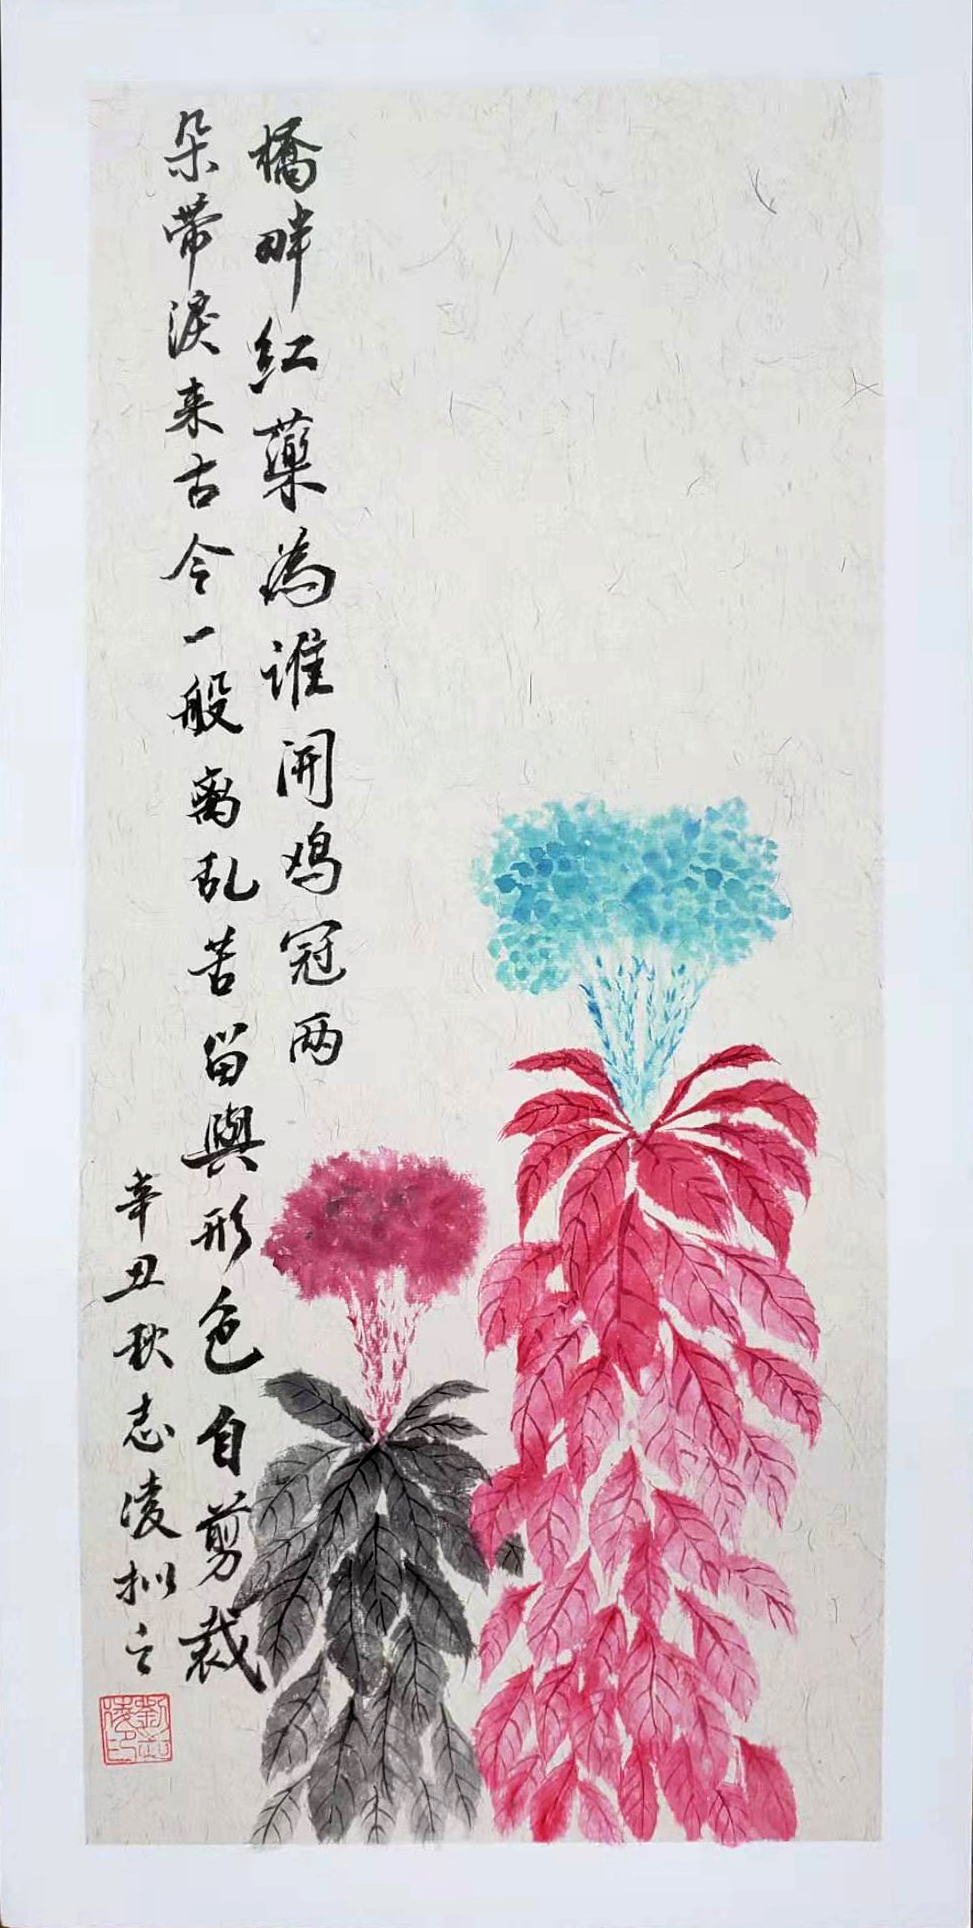 橋畔紅藥為谁開鸡冠两
朵带淚来古今一般离乱苦留與形色自剪裁
辛丑秋志凌拟之
劉志凌印